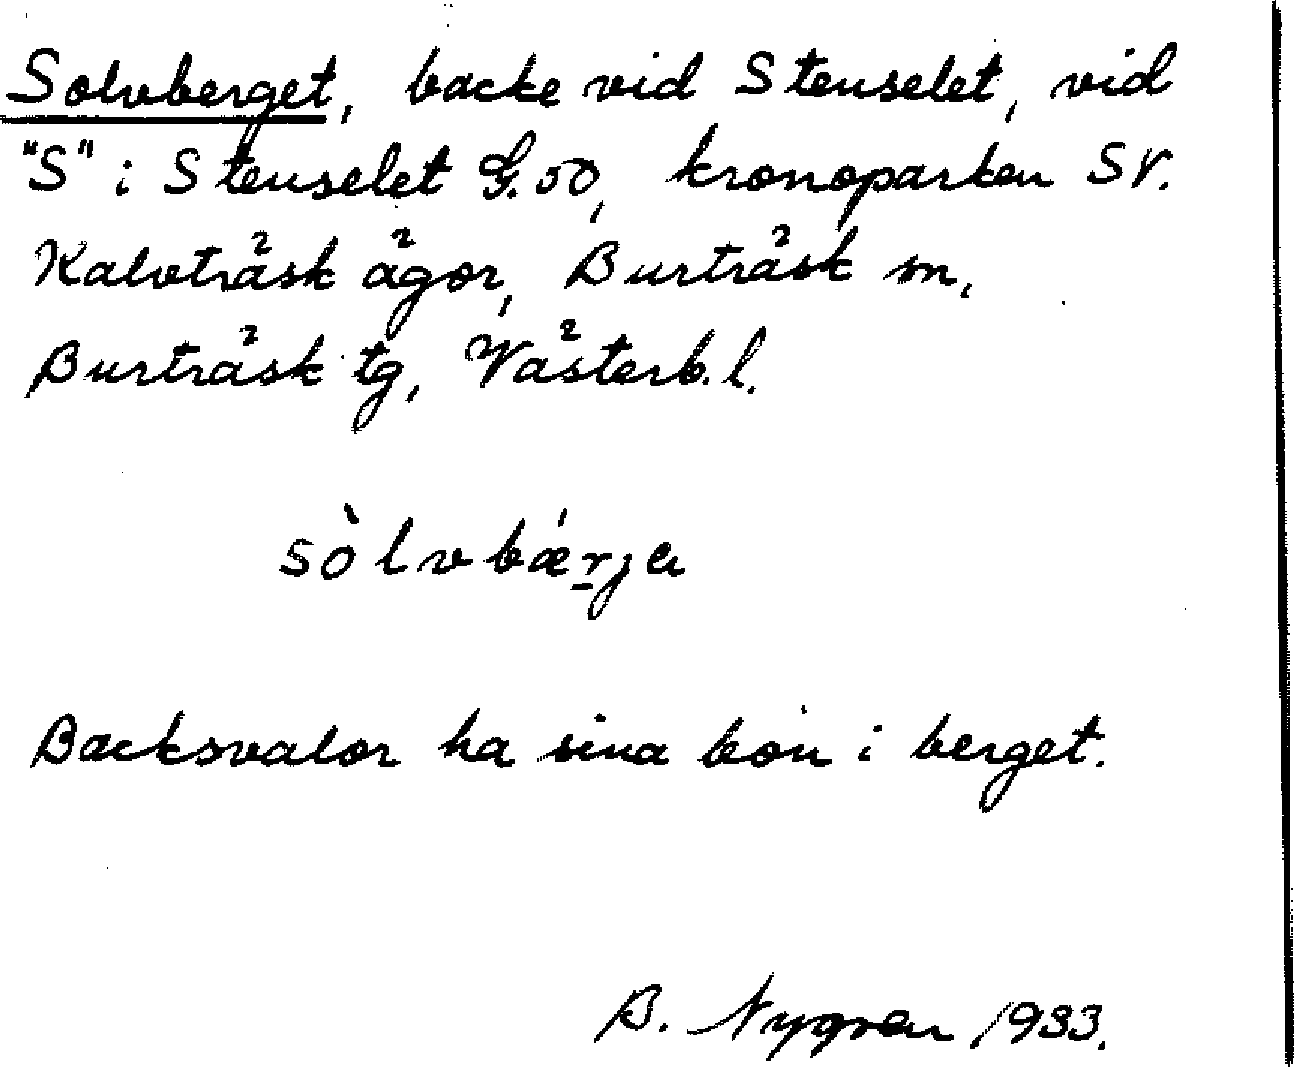 Solvberget, backe vid Stenselet, vid
"S" i Stenselet G.50, kronoparken SV.
Kalvträsk ägor, Burträsk sn,
Burträsk tg, Västerb. l.
sòlvbǽrja
Backsvalor ha sina bon i berget.
B. Nygren 1933.